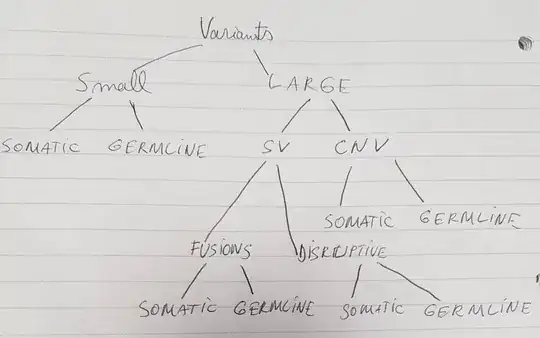 Variants
Small LARGE
SOMATIC GERMLINE SV CNV
SOMATIC GERMLINE
FUSIONS DISRUPTIVE
SOMATIC GERMLINE SOMATIC GERMLINE